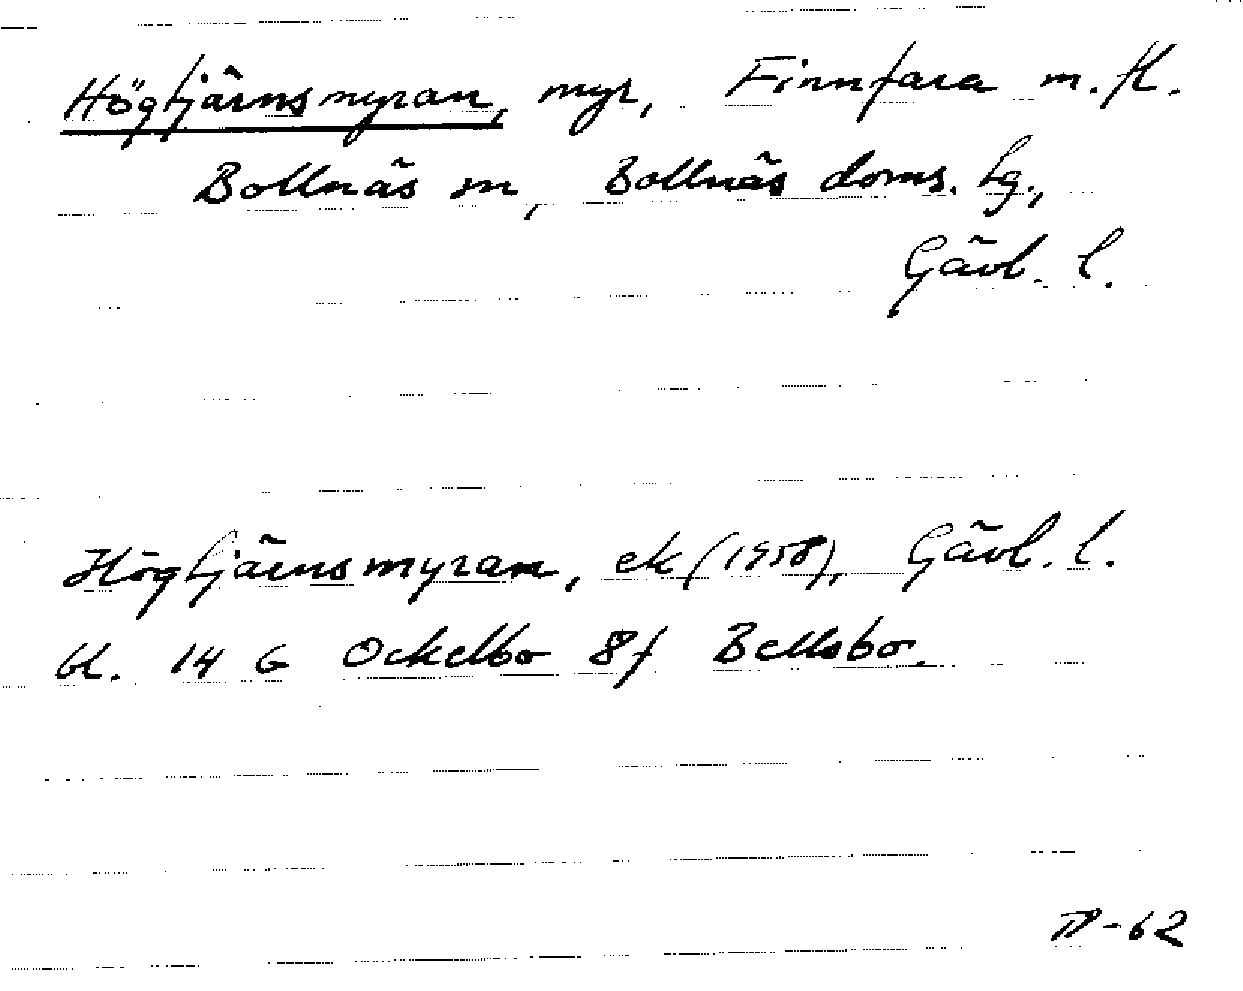 Högtjärnsmyran, myr, Finnfara m. fl.
Bollnäs sn, Bollnäs doms. lg.,
Gävl. l.
Högtjärnsmyran, ek (1958), Gävl. l.
bl. 14 G Ockelbo 8f Bellsbo.
-62